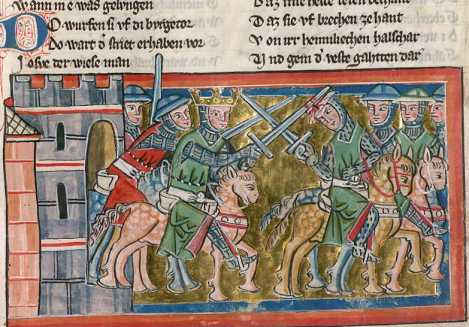 Wann im e was gelvngen
Do wurfen si vf di bvrgetor
Do wart d̄ striet erhaben vor
Josve der wiese man
Daz sie vf brechen zehant
Von irr heimliechen halschar
Vnd gein d̄ veste gahten dar